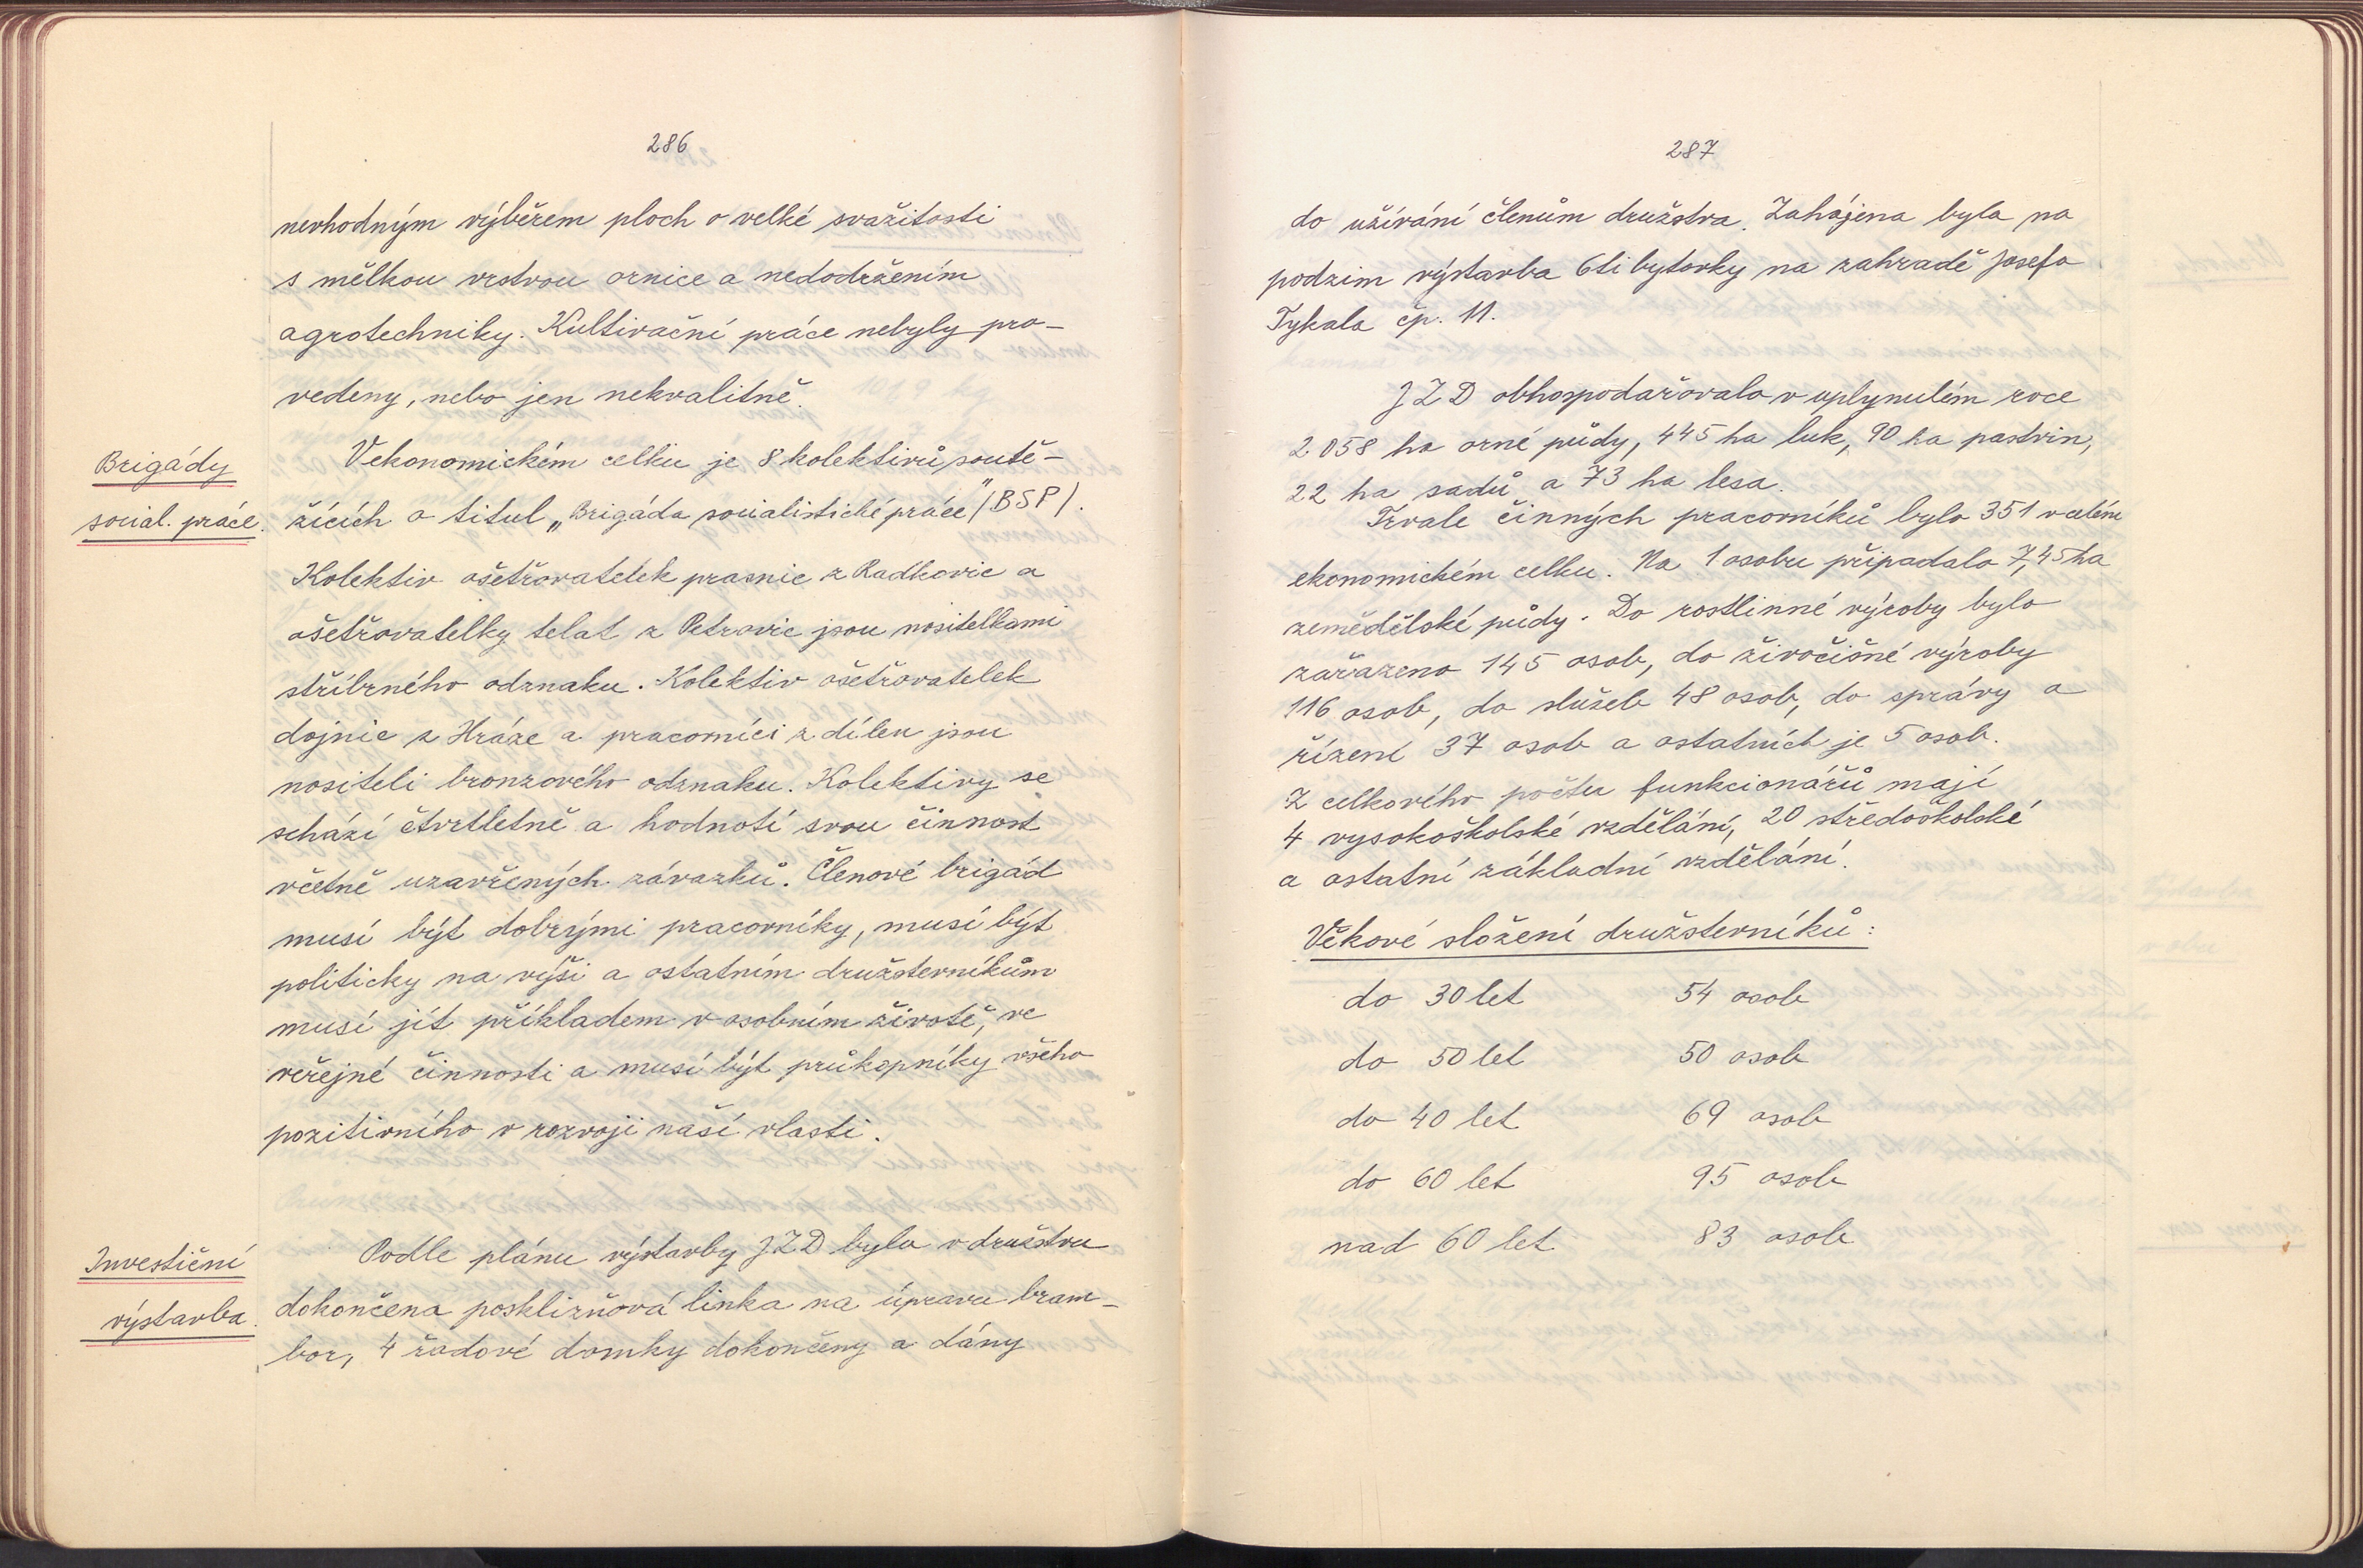 286
nevhodným výběrem ploch o velké svažitosti
s mělkou vrstvou ornice a nedodržením
agrotechniky. Kultivační práce nebyly pro-
vedeny, nebo jen nekvalitně.
Brigády
social. práce.
V ekonomickém celku je 8 kolektivů soutě-
žících o titul „Brigáda socialistické práce" /BSP/.
Kolektiv ošetřovatelek prasnic z Radkovic a
ošetřovatelky telat z Petrovic jsou nositelkami
stříbrného odznaku. Kolektiv ošetřovatelek
dojnic z Hráze a pracovníci z dílen jsou
nositeli bronzového odznaku. Kolektivy se
schází čtvrtletně a hodnotí svou činnost
včetně uzavřených závazků. Členové brigád
musí být dobrými pracovníky, musí být
politicky na výši a ostatním družsterníkům
musí jít příkladem v osobním životě, ve
veřejné činnosti a musí být průkopníky všeho
pozitivního v rozvoji naší vlasti.
Investiční
výstavba.
Podle plánu výstavby JZD byla v družstvu
dokončena posklizňová linka na úpravu bram-
bor, 4 řadové domky dokončeny a dány
287
do užívání členům družstva. Zahájena byla na
podzim výstavba 6ti bytovky na zahradě Josefa
Tykala čp. 11.
JZD obhospodařovalo v uplynulém roce
2 058 ha orné půdy, 445 ha luk, 90 ha pastvin,
22 ha sadů a 73 ha lesa.
Trvale činných pracovníků bylo 351 v celém
ekonomickém celku. Na 1 osobu připadalo 7,45 ha
zemědělské půdy. Do rostlinné výroby bylo
zařazeno 145 osob, do živočišné výroby
116 osob, do služeb 48 osob, do správy a
řízení 37 osob a ostatních je 5 osob.
Z celkového počtu funkcionářů mají
4 vysokoškolské vzdělání, 20 středoškolské
a ostatní základní vzdělání.
Věkové složení družsterníků:
do 30 let 54 osob
do 50 let 50 osob
do 40 let 69 osob
do 60 let 95 osob
nad 60 let 83 osob